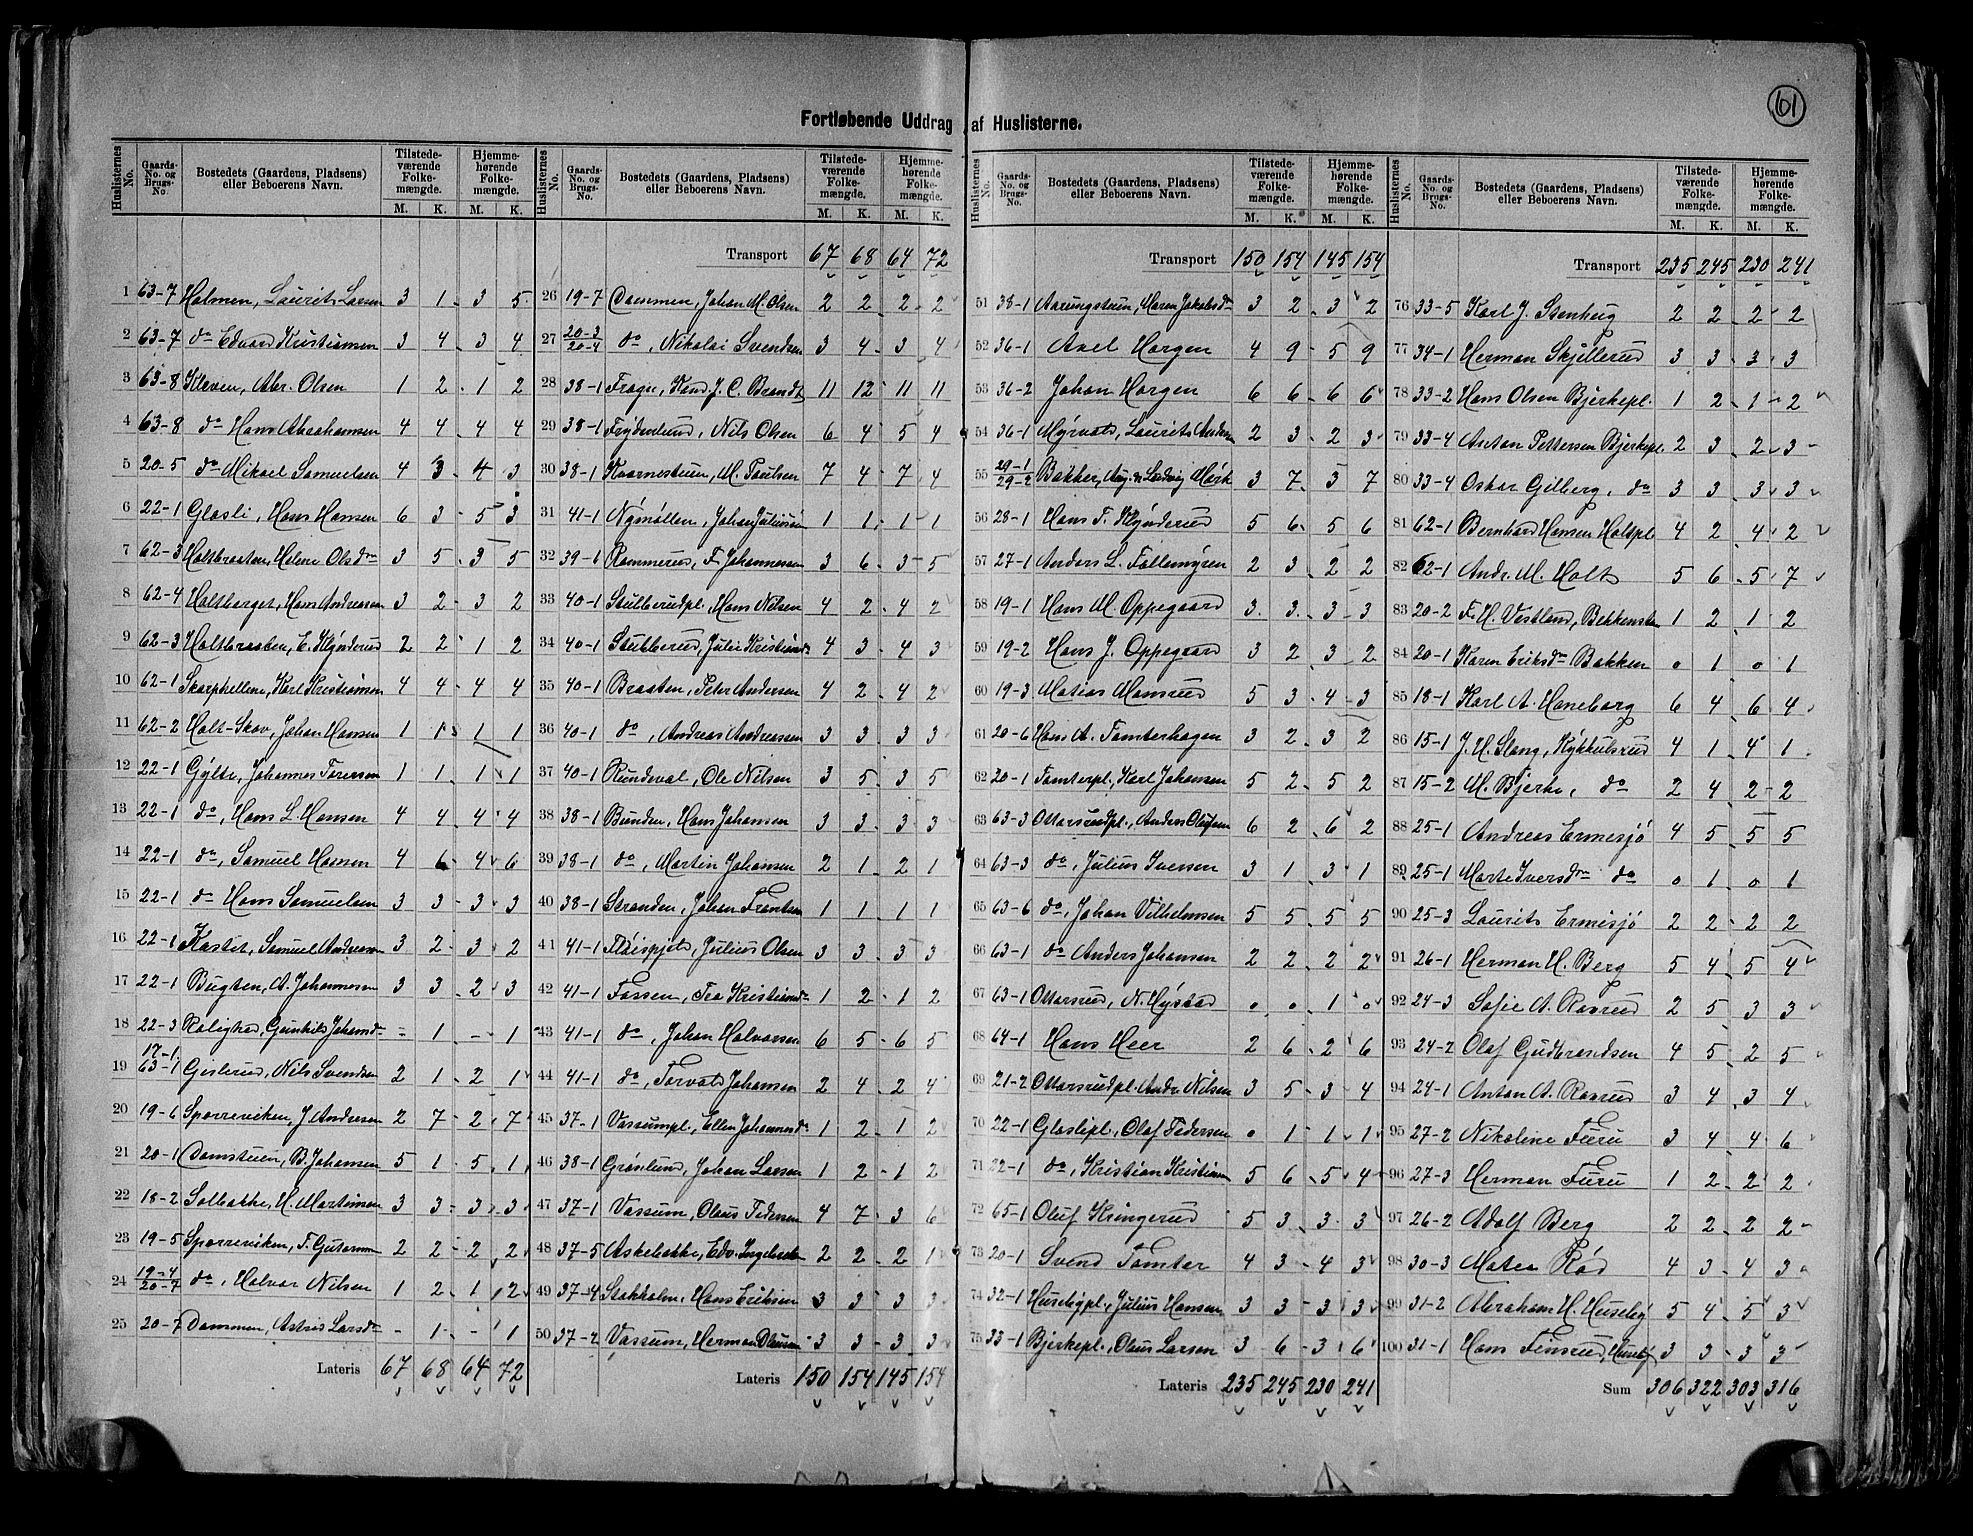 61
Fortløbende Uddrag af Huslisterne.
Huslisternes No. Gaards-No. og Brugs-No. Bostedets (Gaardens, Pladsens) eller Beboerens Navn. Tilstedeværende Folkemængde. M. K. Hjemmehørende Folkemængde. M. K.
1 63-7 Holmen, Laurits Larsen 3 1 3 5
2 63-7 do Edvard Kristiansen 3 4 3 4
3 63-8 Kleven, Abr. Olsen 1 2 1 2
4 63-8 do Hans Abrahamsen 4 4 4 4
5 20-5 do Mikael Samuelsen 4 3 4 3
6 22-1 Glasli, Hans Hansen 6 3 5 3
7 62-3 Holtbraaten, Helene Olsdn 3 5 3 5
8 62-4 Holtberget, Hans Andreasen 3 2 3 2
9 62-3 Holtbraaten, E. Klynderud 2 2 1 2
10 62-1 Skarphellene, Karl Kristiansen 4 4 4 4
11 62-2 Holt-Skov, Johan Hansen 1 1 1 1
12 22-1 Gylte, Johannes Torersen 1 1 1 1
13 22-1 do, Hans L Hansen 4 4 4 4
14 22-1 do, Samuel Hansen 4 6 4 6
15 22-1 do Hans Samuelsen 3 3 3 3
16 22-1 Kastet, Samuel Andersen 3 2 3 2
17 22-1 Bugten, A. Johannesen 3 3 2 3
18 22-3 Rolighed, Gunhild Johansdr - 1 - 1
19 17-1 63-1 Gislerud, Nils Svendsen 2 1 2 1
20 19-6 Sporreviken, J Andersen 2 7 2 7
21 20-1 Damstuen, B. Johansen 5 1 5 1
22 18-2 Solbakke, H. Martinsen 3 3 3 3
23 19-5 Sporreviken, T. Gutormsen 2 2 2 2
24 19-4 20-7 do, Halvor Nilsen 1 2 1 2
25 20-7 Dammen, Astrid Larsdr - 1 - 1
Lateris 67 68 64 72
Huslisternes No. Gaards-No. og Brugs-No. Bostedets (Gaardens, Pladsens) eller Beboerens Navn. Tilstedeværende Folkemængde. M. K. Hjemmehørende Folkemængde. M. K.
Transport 67 68 64 72
26 19-7 Dammen, Johan M. Olsen 2 2 2 2
27 20-3 20-4 do, Nikolai Svendsen 3 4 3 4
28 38-1 Frogn, Kand. J. C. Brandt 11 12 11 11
29 38-1 Frydenlund, Nils Olsen 6 4 5 4
30 38-1 Kvarnestuen, M. Paulsen 7 4 7 4
31 41-1 Nymøllen, Johan Juliussen 1 1 1 1
32 39-1 Rammerud, F. Johannessen 3 6 3 5
33 40-1 Stubberudpl., Hans Nilsen 4 2 4 2
34 40-1 Stubberud, Julie Kristiansdr 4 3 4 3
35 40-1 Braaten, Peter Andersen 4 2 4 2
36 40-1 do, Andreas Andreassen 3 3 3 3
37 40-1 Rundeval, Ole Nilsen 3 5 3 5
38 38-1 Bunden, Hans Johansen 3 3 3 3
39 38-1 do, Martin Johansen 2 1 2 1
40 38-1 Stranden, Johan Frantsen 1 1 1 1
41 41-1 Fløispjeld, Julius Olsen 3 3 3 3
42 41-1 Fossen, Tea Kristiansdr 1 2 1 2
43 41-1 do, Johan Halvorsen 6 5 6 5
44 41-1 do, Torvald Johansen 2 4 2 4
45 37-1 Vassumpl., Ellen Johannesdr 1 2 1 2
46 38-1 Grønlund, Johan Larsen 1 2 1 2
47 37-1 Vassum, Olaus Pedersen 4 7 3 6
48 37-5 Askebakke, Edv. Ingebretsen 2 2 2 1
49 37-4 Stokholm, Hans Eriksen 3 3 3 3
50 37-2 Vassum, Herman Olaussen 3 3 3 3
Lateris 150 154 145 154
Huslisternes No. Gaards-No. og Brugs-No. Bostedets (Gaardens, Pladsens) eller Beboerens Navn. Tilstedeværende Folkemængde. M. K. Hjemmehørende Folkemængde. M. K.
Transport 150 154 145 154
51 38-1 Aarungstuen, Maren Jakobsdr 3 2 3 2
52 36-1 Axel Horgen 4 9 5 9
53 36-2 Johan Horgen 6 6 6 6
54 36-1 Myrvold, Laurits Andersen 2 3 2 3
55 29-1 29-2 Bakker, Aug. & Ludvig Mørk 3 7 3 7
56 28-1 Hans T. Klynderud 5 6 5 6
57 27-1 Anders L. Follemyren 2 3 2 2
58 19-1 Hans M. Oppegaard 3 3 3 3
59 19-2 Hans J. Oppegaard 3 2 3 2
60 19-3 Matias Mansrud 5 3 4 3
61 20-6 Hans A. Tomterhagen 3 2 3 2
62 20-1 Tomterpl., Karl Johansen 5 2 5 2
63 63-3 Ottarsrudpl., Anders Olafsen 6 2 6 2
64 63-3 do, Julius Iversen 3 1 3 1
65 63-6 do, Johan Vilhelmsen 5 5 5 5
66 63-1 do Anders Johansen 2 2 2 2
67 63-1 Ottarsrud, N. Hystad 0 0 1 0
68 64-1 Hans Heer 2 6 2 6
69 21-2 Ottarsrudpl. Andr. Nilsen 3 5 3 4
70 22-1 Glaslipl., Olaf Pedersen 0 1 1 1
71 22-1 do, Kristian Kristiansen 5 6 5 4
72 65-1 Oluf Kringerud 5 3 3 3
73 20-1 Svend Tomter 4 3 4 3
74 32-1 Husebypl., Julius Hansen 3 3 3 3
75 33-1 Bjerkepl., Olaus Larsen 3 6 3 6
Lateris 235 245 230 241
Huslisternes No. Gaards-No. og Brugs-No. Bostedets (Gaardens, Pladsens) eller Beboerens Navn. Tilstedeværende Folkemængde. M. K. Hjemmehørende Folkemængde. M. K.
Transport 235 245 230 241
76 33-5 Karl J. Stenberg 2 2 2 2
77 34-1 Herman Skjellerud 3 3 3 3
78 33-2 Hans Olsen Bjerkepl. 1 2 1 2
79 33-4 Anton Pettersen Bjerkepl. 2 3 2 3
80 33-4 Oskar Gilberg, do 3 3 3 3
81 62-1 Bernhard Hansen Holtpl. 4 2 4 2
82 62-1 Andr. M. Holt 5 6 5 7
83 20-2 F. H. Vestland, Bekkensten 1 2 1 2
84 20-1 Karen Eriksdr Bakken 0 1 0 1
85 18-1 Karl A. Haneborg 6 4 6 4
86 15-1 J. H. Slang, Kykkelsrud 4 1 4 1
87 15-2 M. Bjerke, do 2 4 2 2
88 25-1 Andreas Ermesjø 4 5 5 5
89 25-1 Marte Iversdr do 0 1 0 1
90 25-3 Laurits Ermesjø 2 2 2 2
91 26-1 Herman H. Berg 5 4 5 4
92 24-3 Sofie A. Ravrud 2 5 3 3
93 24-2 Olaf Gudbrandsen 4 5 2 5
94 24-1 Anton A. Ravrud 3 4 3 4
95 27-2 Nikoline Furu 3 4 4 6
96 27-3 Herman Furu 1 2 2 2
97 26-2 Adolf Berg 2 2 2 2
98 30-3 Matea Rød 4 3 4 3
99 31-2 Abraham H. Huseby 5 4 5 3
100 31-1 Hans Finsrud, Huseby 3 3 3 3
Sum 306 322 303 316